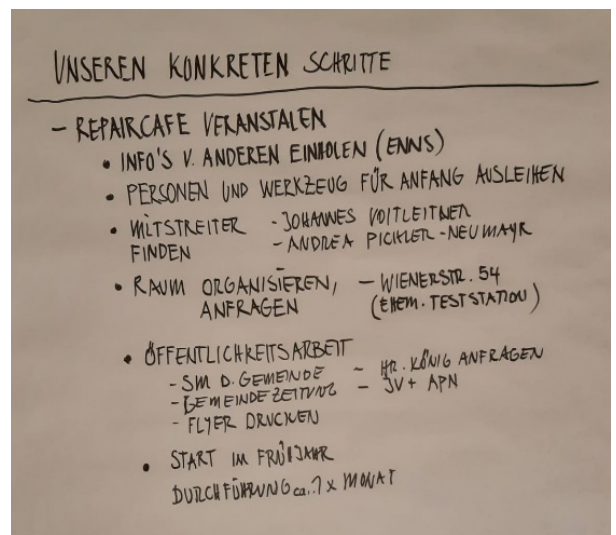 UNSEREN KONKRETEN SCHRITTE
- REPAIRCAFE VERANSTALEN
• INFO'S V. ANDEREN EINHOLEN (ENNS)
• PERSONEN UND WERKZEUG FÜR ANFANG AUSLEIHEN
• MITSTREITER - JOHANNES VOITLEITNER
FINDEN - ANDREA PICHLER-NEUMAYR
• RAUM ORGANISIEREN, - WIENERSTR. 54
ANFRAGEN (EHEM. TESTSTATION)
• ÖFFENTLICHKEITSARBEIT
- SM D. GEMEINDE - HR. KÖNIG ANFRAGEN
- GEMEINDEZEITUNG - JV + APN
- FLYER DRUCKEN
• START IM FRÜHJAHR
DURCHFÜHRUNG ca. 1 x MONAT